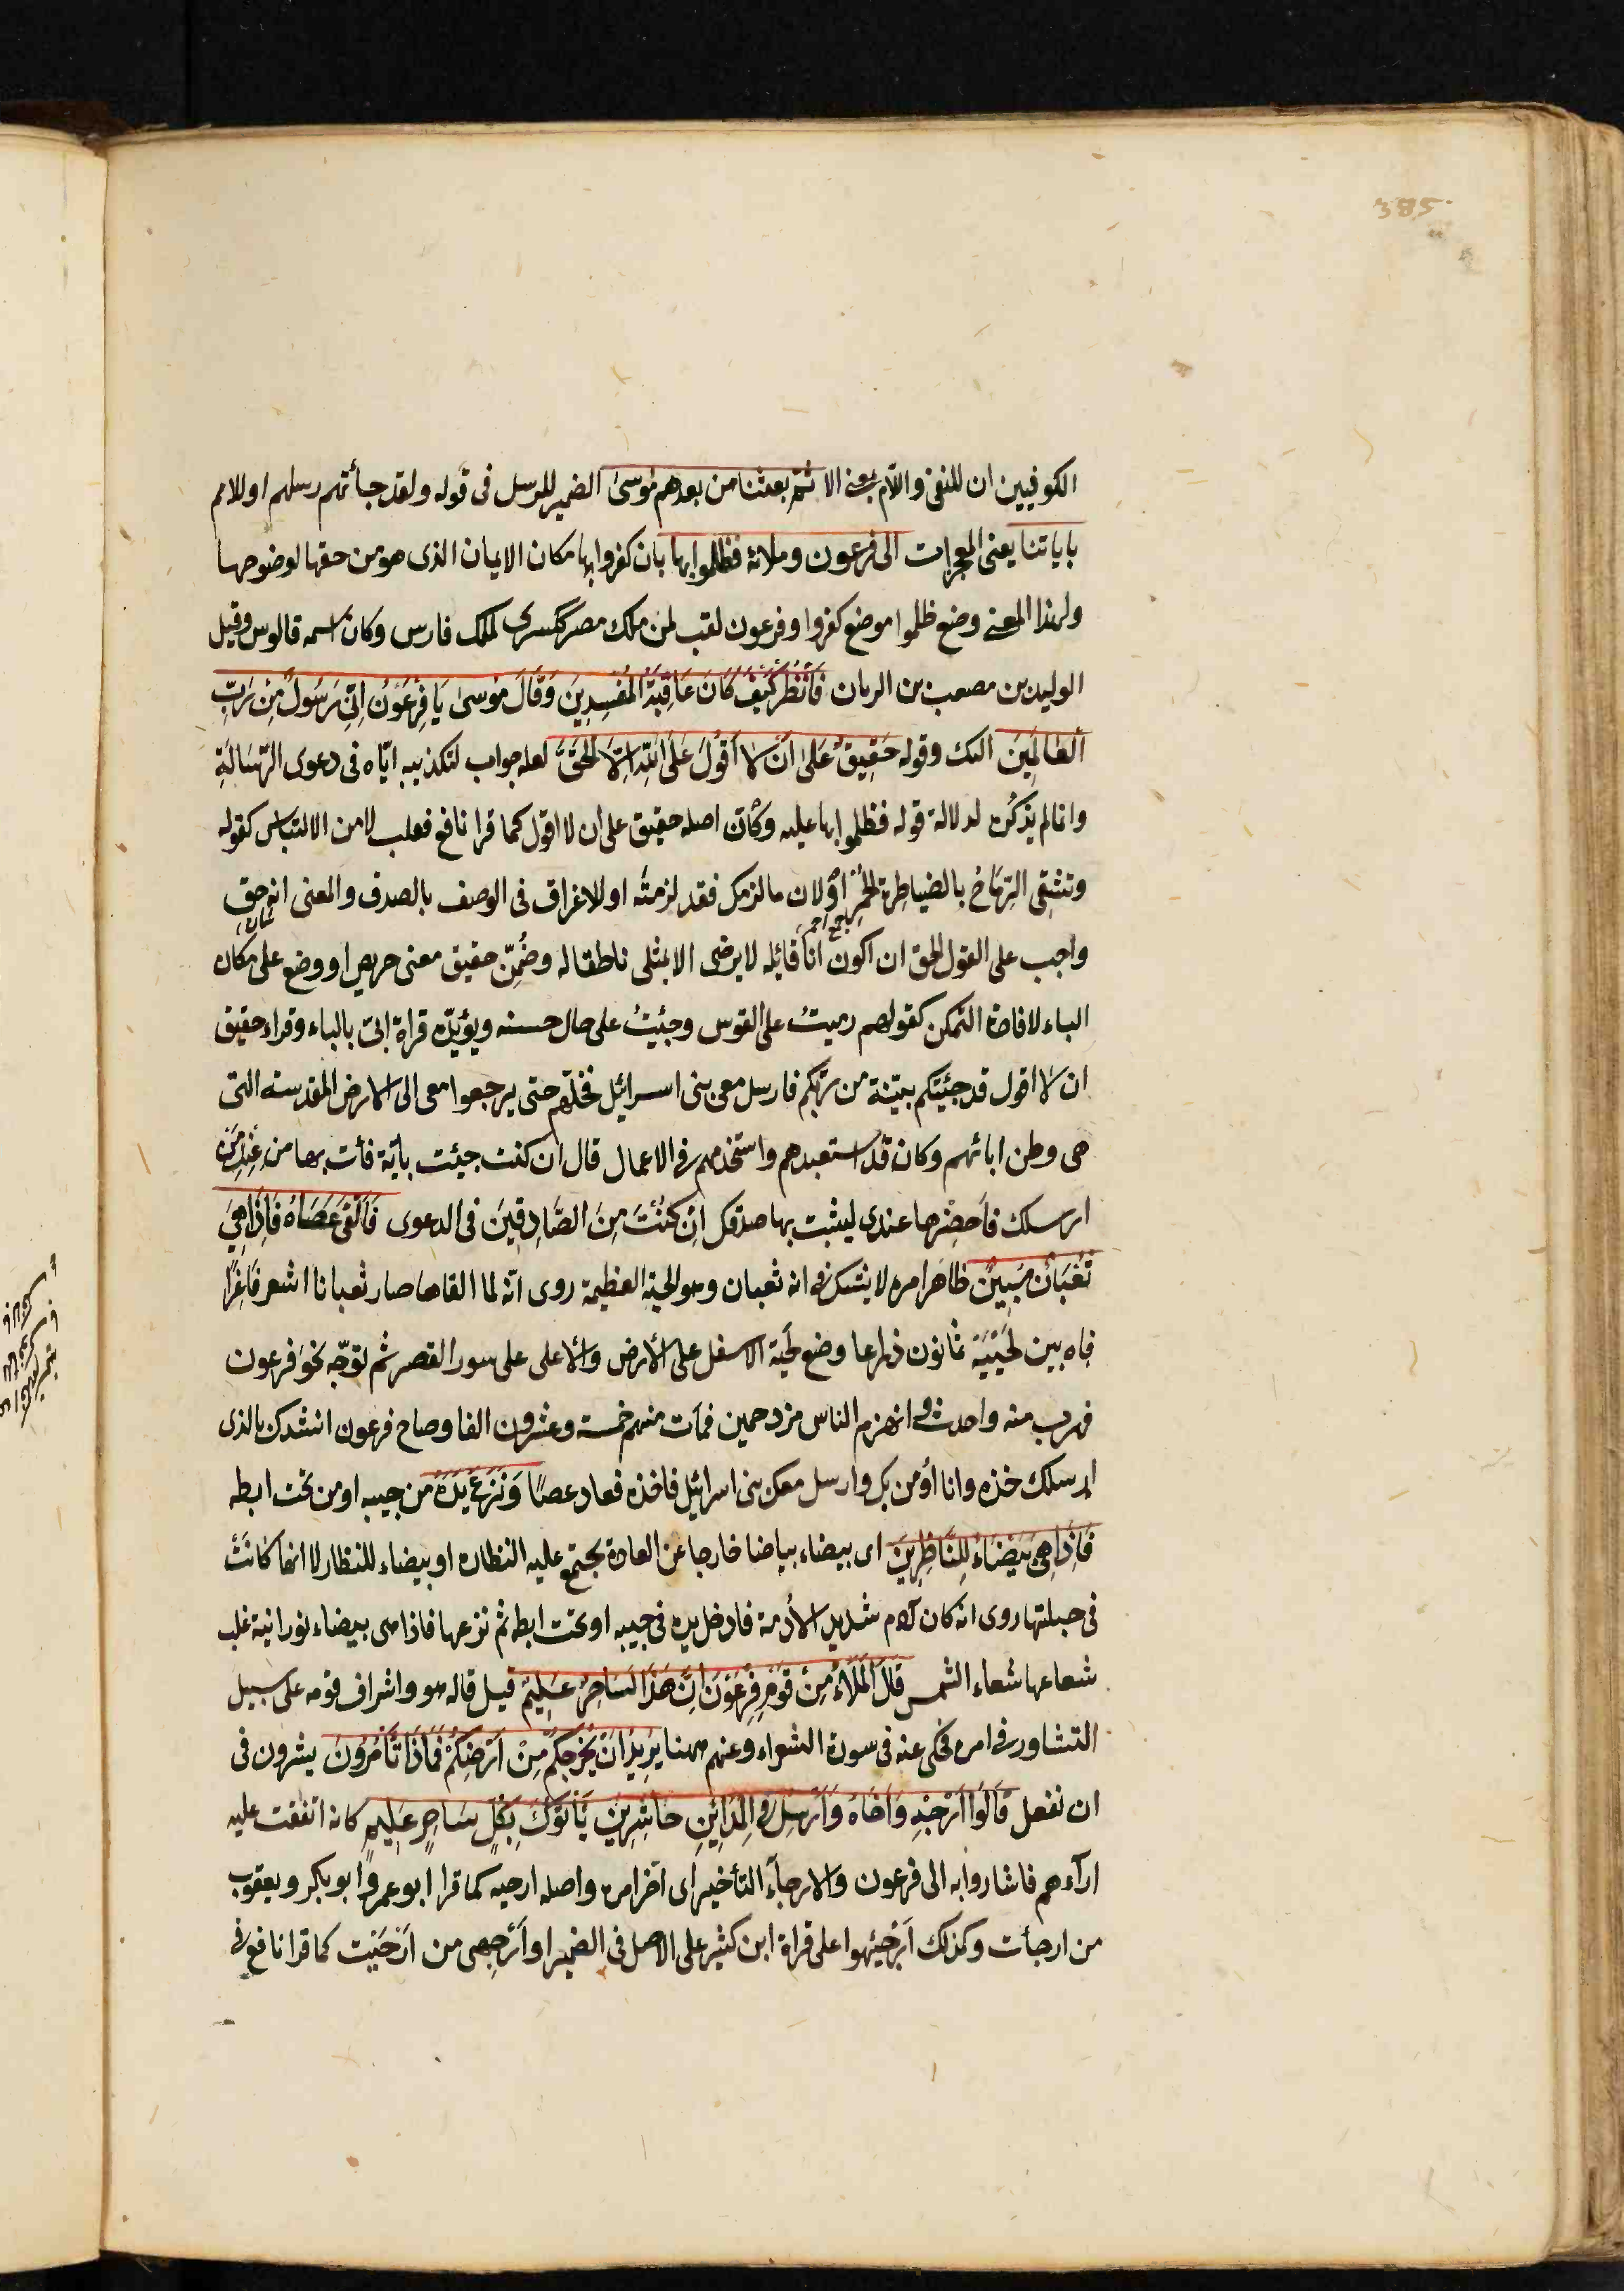 385
الكوفيين ان للنفى واللام بمعنى الا ثم بعثنا من بعدهم موسى الضمير للرسل فى قوله ولقد جاأتهم رسلهم او للامم
باياتنا يعنى المعجزات الى فرعون وملائه فظلموا بها بان كفروا بها مكان الايمان الذى هو من حقها لوضوحها
ولهذا المعنى وضع ظلموا موضع كفروا وفرعون لقب لمن ملك مصر ككسرى لملك فارس وكان اسمه قالوس وقيل
الوليد بن مصعب بن الريان فَانْظُرْ كَيْفَ كَانَ عَاقِبَةُ الْمُفْسِدِينَ وَقَالَ مُوسىٰ يَا فِرْعَوْنُ اِنِّى رَسُولٌ مِنْ رَبِّ
الْعَالَمِينَ اليك وقوله حَقِيقٌ عَلىٰ اَنْ لَا اَقُولَ عَلَى اللهِ اِلَّا الْحَقَّ لعله جواب لتكذيبه اياه فى دعوى الرّسَالَةِ
وانما لم يذكُره لدلالة قوله فظلموا بها عليه وكأن اصله حقيق على ان لا اقول كما قرا نافع فقلب لامن الالتباس كقوله
وتشقِى الرّمَاحُ بالضياطِرة الحُمْرِ اَوْ لان ما لزمك فقد لزمته او للاغراق فى الوصف بالصدق والمعنى انه حق
جمع احمر
واجب على القول الحق ان اكون انا قائله لا يرضى الا بمثلى ناطقا له وضُمِّن حقيق معنى حريص او وضع على مكان
الباء لافادة التمكن كقولهم رميتُ على القوس وجئتُ على حال حسنه ويؤيّده قراة ابىّ بالباء وقراء حقيق
ان لا اقول قد جئتكم ببيّنة من ربّكم فارسل معى بنى اسرائيل فخلّهم حتى يرجعوا معى الى الارض المقدسة التى
هى وطن ابائهم وكان قد استعبدهم واستخدمهم فى الاعمال قال ان كنت جيئت بأية فأت بها من عِنْدِ مَنْ
ارسلك فاَحضِرها عندى ليثبت بها صدقك اِنْ كُنْتَ مِنَ الصَّادِقِينَ فى الدعوى فَاَلْقىٰ عَصَاهُ فَاِذَا هِىَ
ثُعْبَانٌ مُبِينٌ ظاهر امره لا يشك فى انه ثعبان وهو الحيّة العظيمة روى انّه لما القاها صار ثعبانا اشعر فَاغِرًا
فاه بين لَحْيَيْهِ ثمانون ذراعا وضع لحيَه الاسفل على الأرض والأعلى على سور القصر ثم توجّه نحوَ فرعون
فهرب منه واحدث وانهزم الناس مزدحمين فمات منهم خمسة وعشرون الفا وصاح فرعون انشدك بالذى
ارسلك خذه وانا اُومن بك وارسل معك بنى اسرائيل فاخذه فعاد عصًا وَنَزَعَ يَدَهُ من جيبه او من تحت ابطه
فَاِذَا هِىَ بَيْضَاءُ لِلنَّاظِرِينَ اى بيضاء بياضا خارجا عن العادة يجتمع عليه النظاره او بيضاء للنظار لا انها كَانَتْ
فى جبلتها روى انه كان آدم شديد الأدمة فادخل يده فى جيبه او تحت ابطه ثم نزعها فاذا هى بيضاء نورانية غلب
شعاعها شعاء الشمس قَالَ الْمَلَاءُ مِنْ قَوْمِ فِرْعَوْنَ اِنَّ هَذَا لَسَاحِرٌ عَلِيمٌ قيل قاله هو واشراف قومه على سبيل
التشاور فى امره فحكى عنه فى سورة الشعراء وعنهم ههنا يُرِيدُ اَنْ يُخْرِجَكُمْ مِنْ اَرْضِكُمْ فَمَاذَا تَأْمُرُونَ يشرون فى
ان نفعل قَالُوا اَرْجِهِ وَاَخَاهُ وَاَرْسِلْ فِى الْمَدَائِنِ حَاشِرِينَ يَأْتُوكَ بِكُلِّ سَاحِرٍ عَلِيمٍ كانه اتفقت عليه
اراءهم فاشاروا به الى فرعون والارجاء التأخير اى اخّر امره واصله ارجيه كما قرا ابو عمرو وابو بكر ويعقوب
من ارجأت وكذلك اَرْجِئهوا على قراة ابن كثير على الاصل فى الضمير او اَرْجِهى من اَرْجَيْت كما قرا نافع فى